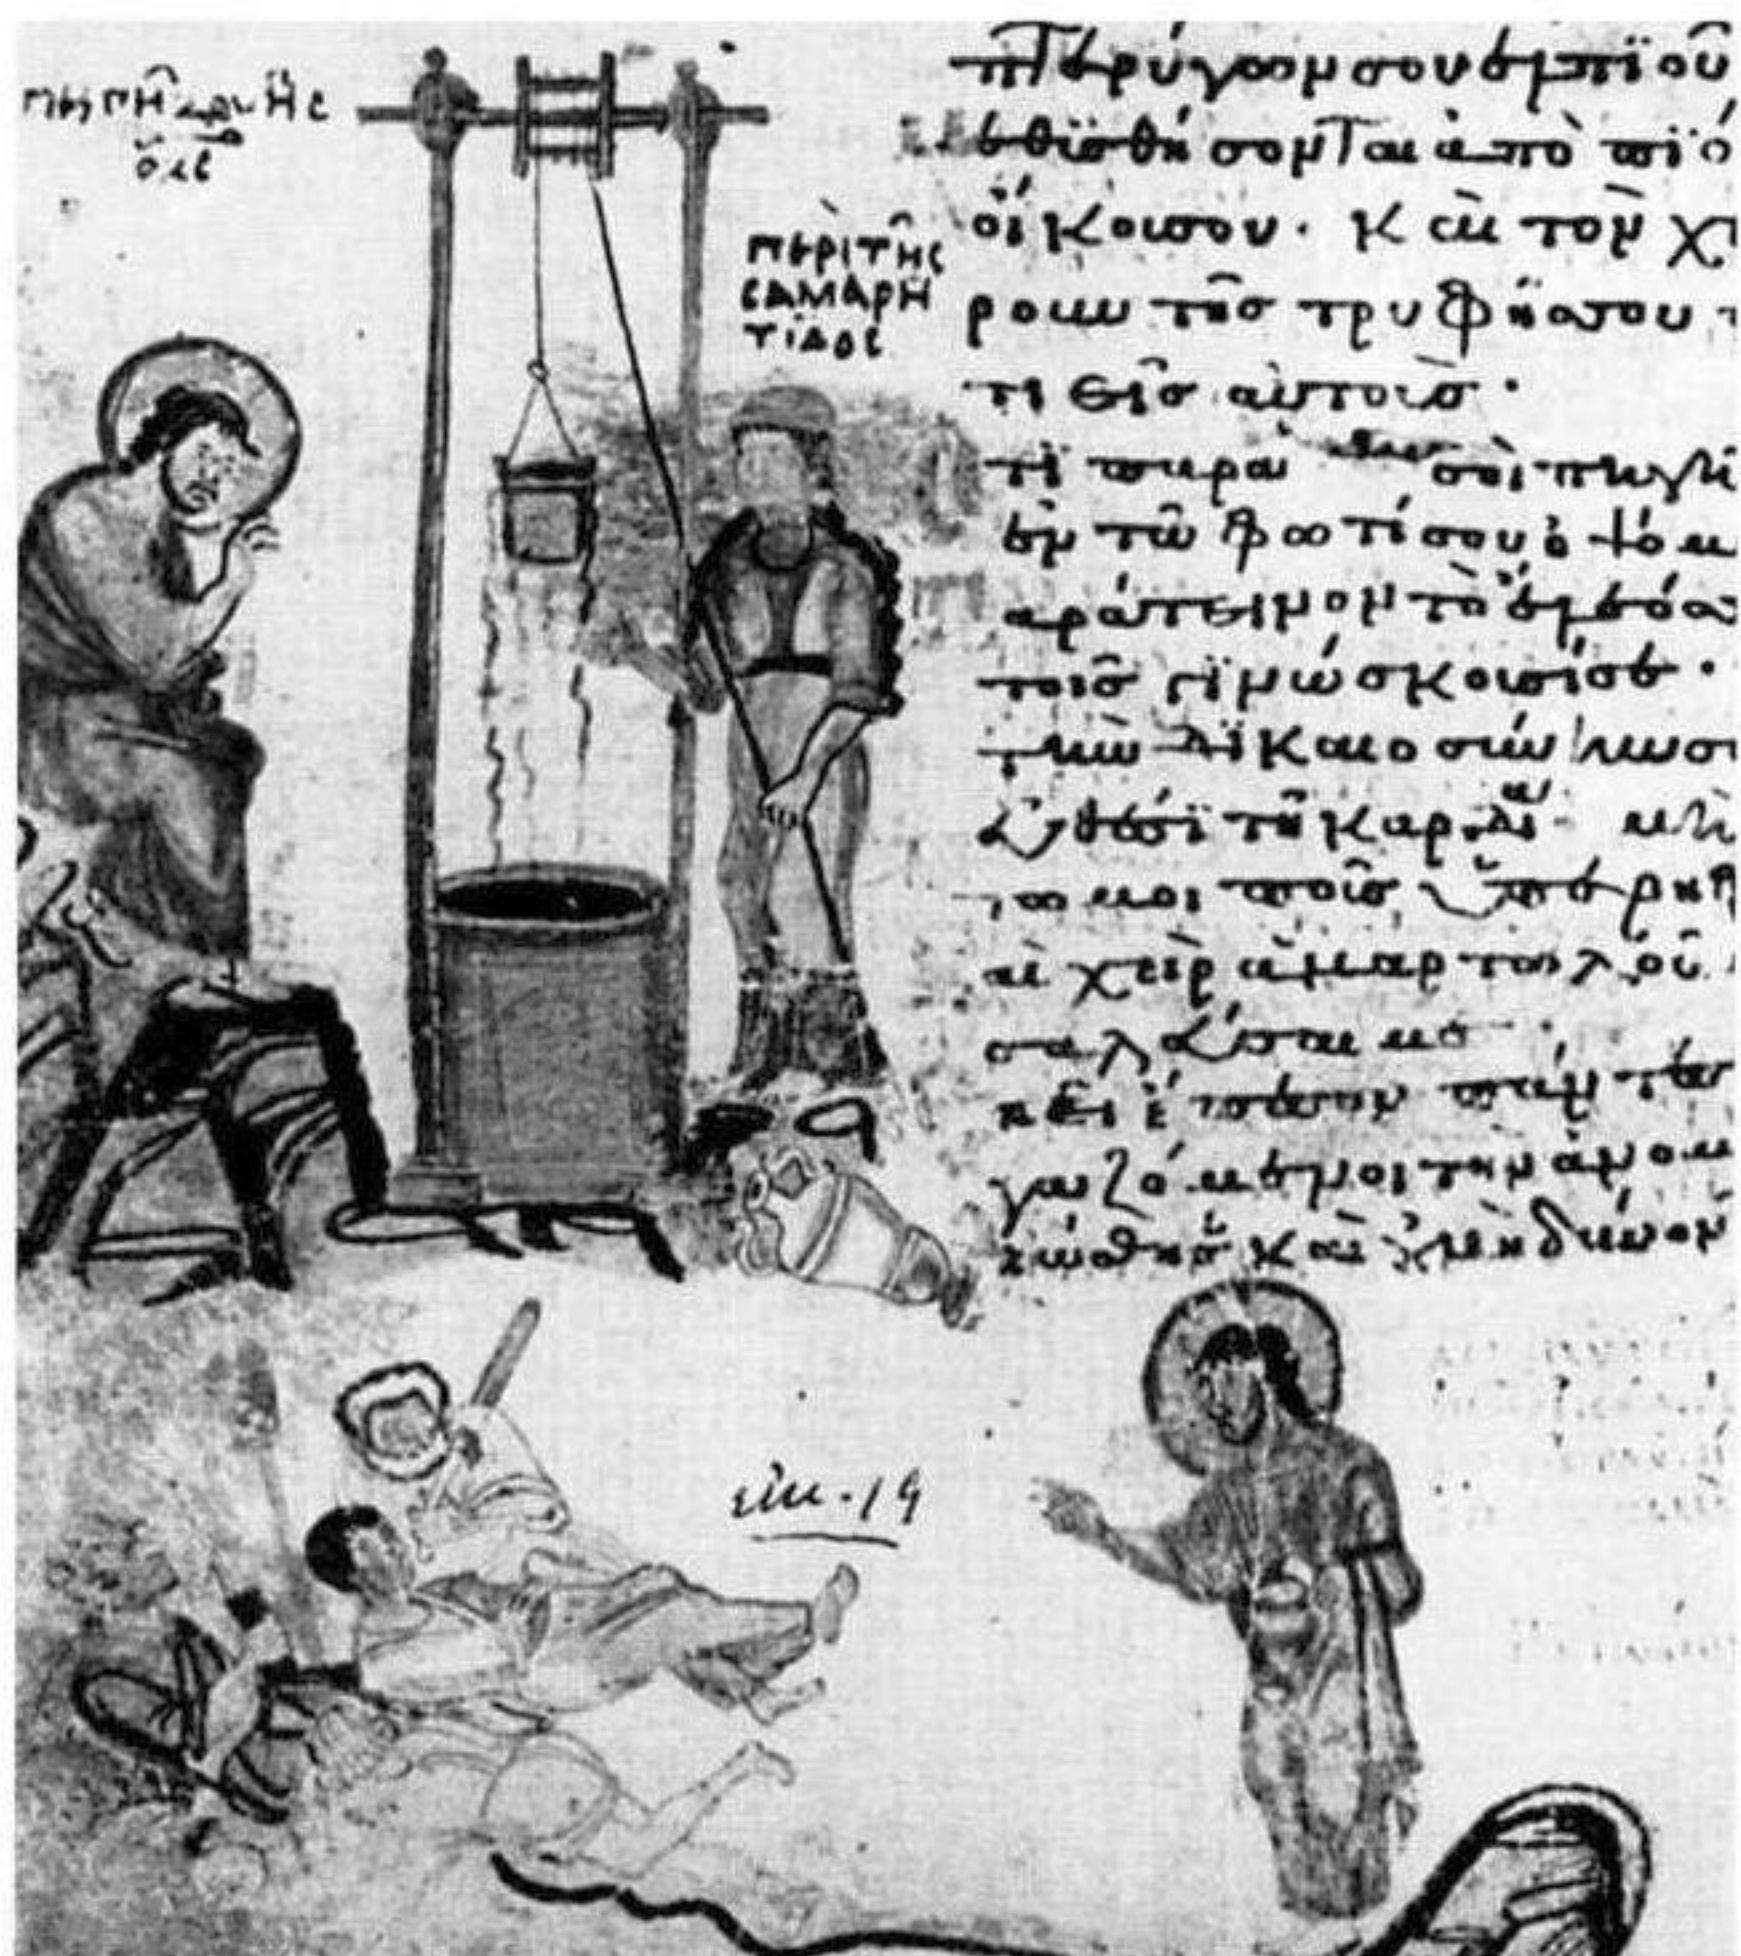 πηγὴ ζωῆς
ὅδε
περὶ τῆς
σαμαρη
τίδος
πτερύγων σου ἐλπιοῦ
μεθϋσθήσονται ἀπὸ πϊό
οἴκου σου· καὶ τὸν χι
ρουν τῆς τρυφῆς σου
τιεῖς αὐτοὺς·
τι παρὰ σοὶ πηγὴ
ἐν τῶ φωτί σου ὀψόμ
αράτεινον τὸ ἔλεόσ
τοῖς γϊνώσκουσίσε·
τὴν δϊκαιοσύνην σ
εὐθέσϊ τῆ καρδία μὴ
τω μοι ποῦς ὑπερηφ
αὶ χεὶρ ἁμαρτωλοῦ
σαλεύσαι με
κεῖ ἔπεσον πάντες
γαζόμενοι τὴν ἀνομ
εικ. 19